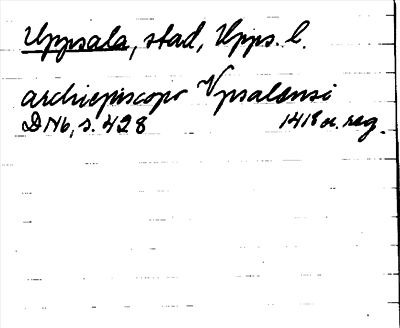 Uppsala, stad, Upps. l.
archiepiscopo Vpsalensi
DN6, s. 428 1418 a. reg.